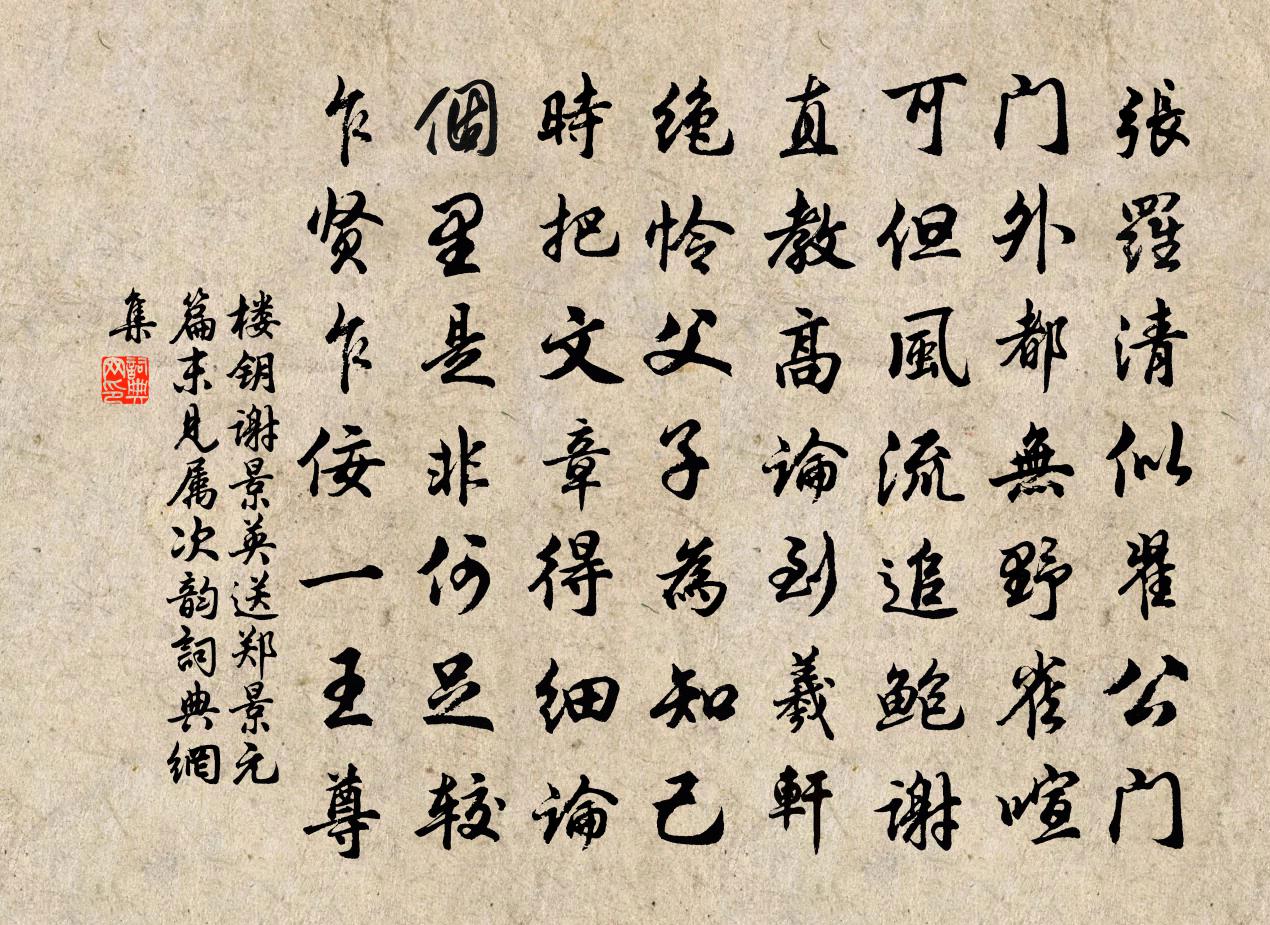 張羅清似翟公門
门外都無野雀喧
可但風流追鲍謝
直教高論到羲軒
绝怜父子為知己
時把文章得细論
個里是非何足较
乍贤乍佞一王尊
楼钥谢景英送郑景元
篇末見属次韵詞典網
集
詞典
网印